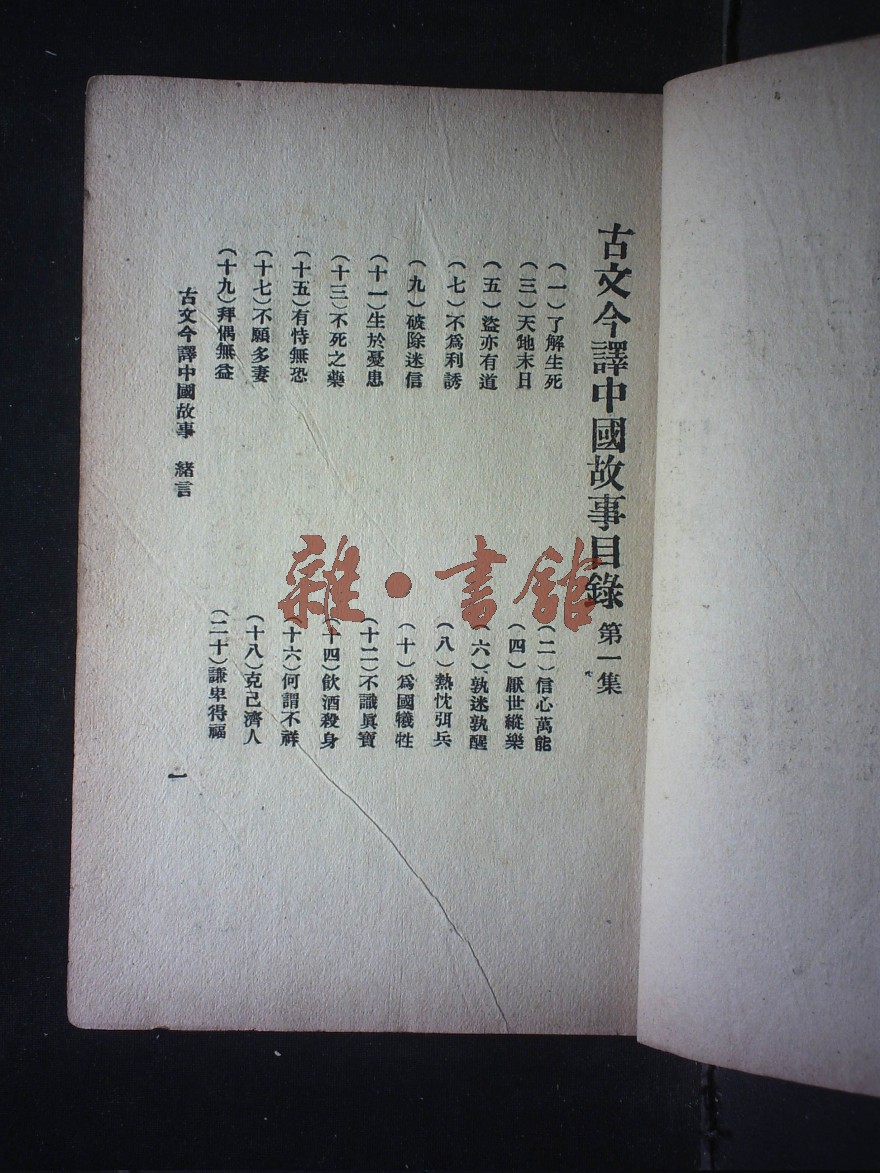 古文今譯中國故事目錄 第一集
（一）了解生死
（二）信心萬能
（三）天地末日
（四）厭世縱樂
（五）盜亦有道
（六）孰迷孰醒
（七）不爲利誘
（八）熱忱弭兵
（九）破除迷信
（十）爲國犧牲
（十一）生於憂患
（十二）不識眞寶
（十三）不死之藥
（十四）飲酒殺身
（十五）有恃無恐
（十六）何謂不祥
（十七）不願多妻
（十八）克己濟人
（十九）拜偶無益
（二十）謙卑得福
古文今譯中國故事 緒言
一
雜·書館